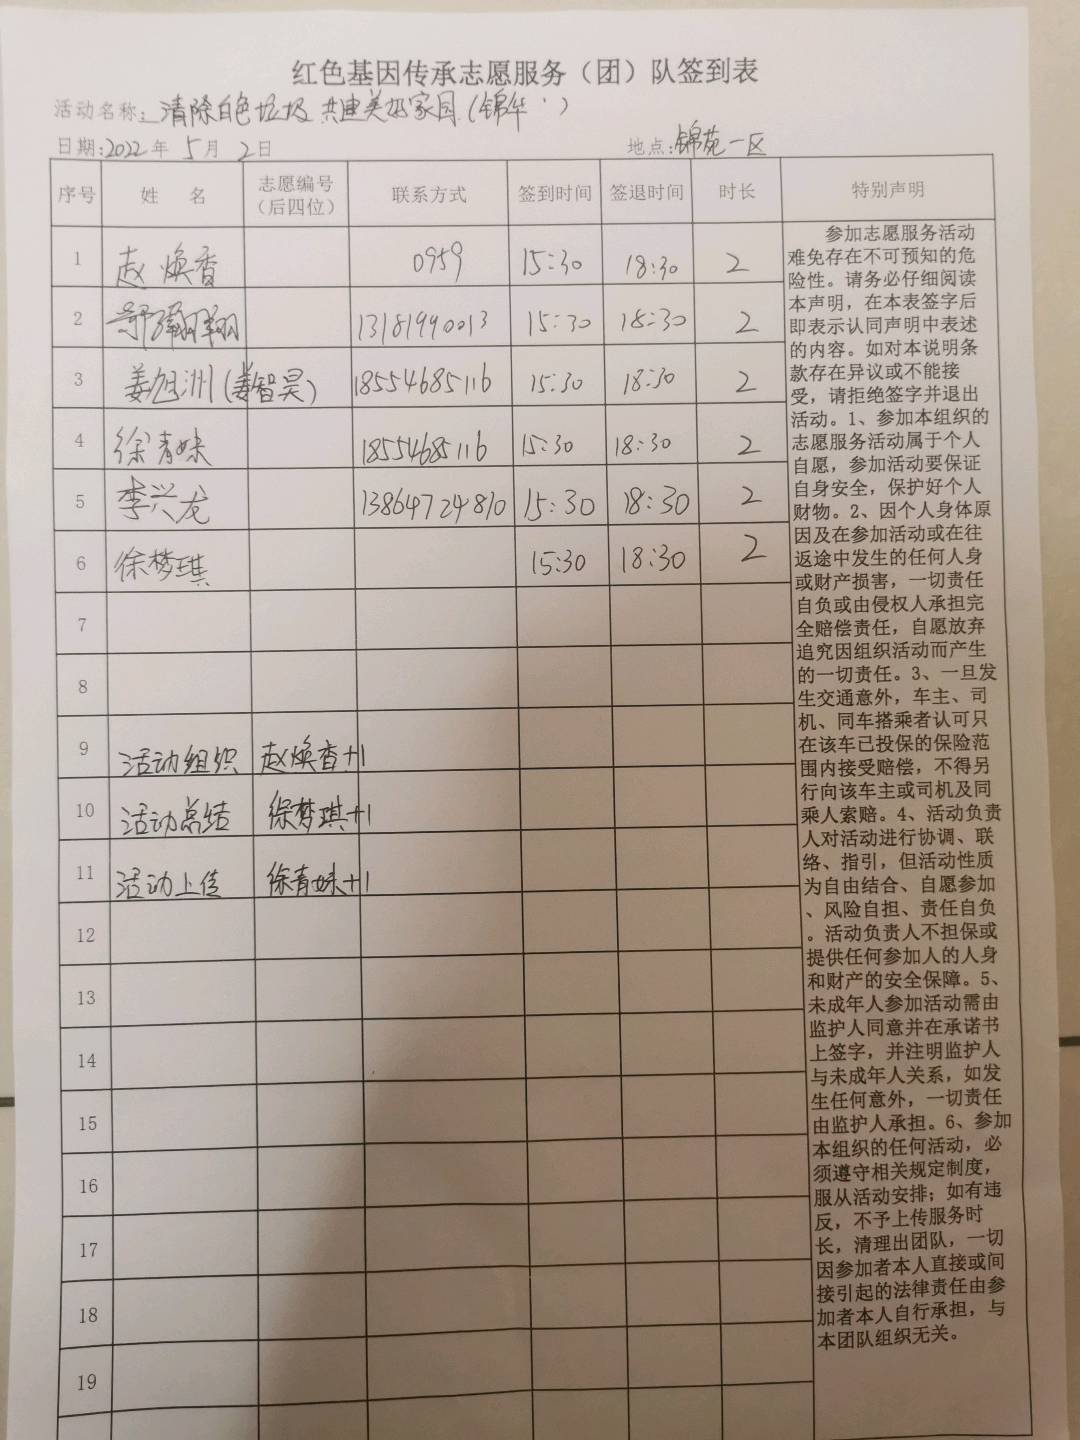 红色基因传承志愿服务（团）队签到表
活动名称：清除白色垃圾 共建美好家园（锦华 ）
日期：2022年 5月 2日 地点：锦苑一区
序号 姓 名 志愿编号（后四位） 联系方式 签到时间 签退时间 时长 特别声明
1 赵焕香 0959 15:30 18:30 2
2 13181990013 15:30 18:30 2
3 姜旭洲（姜智昊） 18554685116 15:30 18:30 2
4 徐青妹 18554685116 15:30 18:30 2
5 李兴龙 13864724810 15:30 18:30 2
6 徐梦琪 15:30 18:30 2
7
8
9 活动组织 赵焕香+1
10 活动总结 徐梦琪+1
11 活动上传 徐青妹+1
12
13
14
15
16
17
18
19
参加志愿服务活动
难免存在不可预知的危
险性。请务必仔细阅读
本声明，在本表签字后
即表示认同声明中表述
的内容。如对本说明条
款存在异议或不能接
受，请拒绝签字并退出
活动。1、参加本组织的
志愿服务活动属于个人
自愿，参加活动要保证
自身安全，保护好个人
财物。2、因个人身体原
因及在参加活动或在往
返途中发生的任何人身
或财产损害，一切责任
自负或由侵权人承担完
全赔偿责任，自愿放弃
追究因组织活动而产生
的一切责任。3、一旦发
生交通意外，车主、司
机、同车搭乘者认可只
在该车已投保的保险范
围内接受赔偿，不得另
行向该车主或司机及同
乘人索赔。4、活动负责
人对活动进行协调、联
络、指引，但活动性质
为自由结合、自愿参加
、风险自担、责任自负
。活动负责人不担保或
提供任何参加人的人身
和财产的安全保障。5、
未成年人参加活动需由
监护人同意并在承诺书
上签字，并注明监护人
与未成年人关系，如发
生任何意外，一切责任
由监护人承担。6、参加
本组织的任何活动，必
须遵守相关规定制度，
服从活动安排；如有违
反，不予上传服务时
长，清理出团队，一切
因参加者本人直接或间
接引起的法律责任由参
加者本人自行承担，与
本团队组织无关。